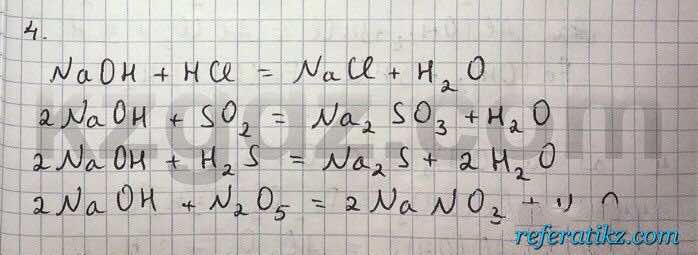 4.
NaOH + HCl = NaCl + H₂O
2NaOH + SO₂ = Na₂SO₃ + H₂O
2NaOH + H₂S = Na₂S + 2H₂O
2NaOH + N₂O₅ = 2NaNO₃ +
referatikz.com